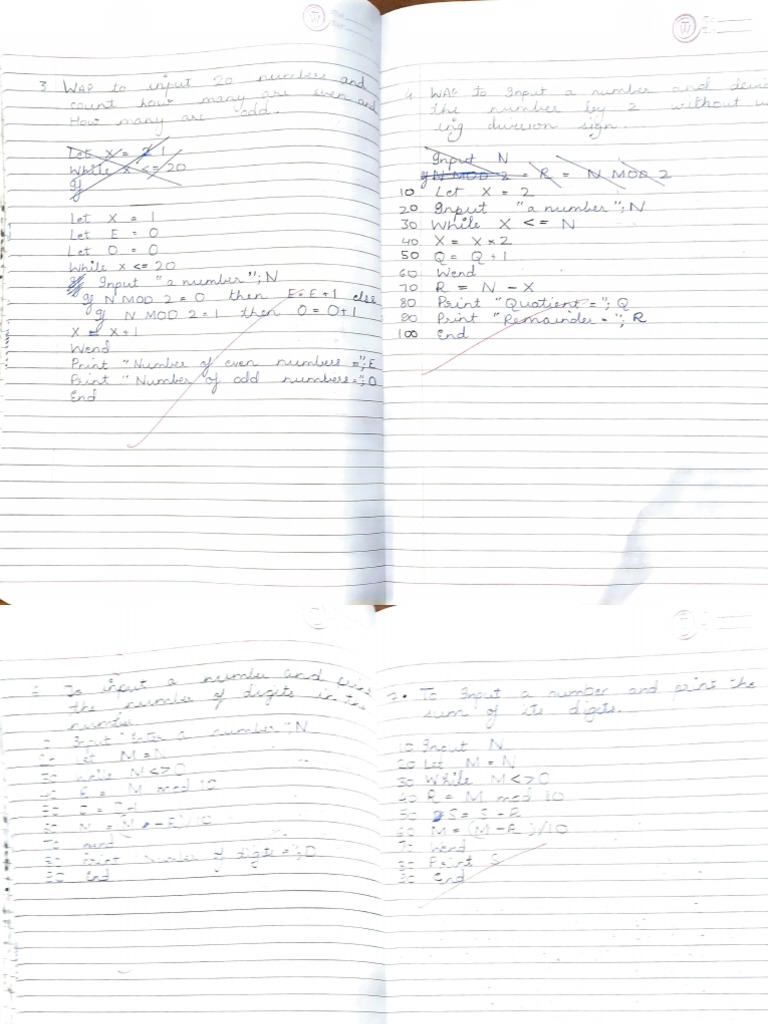 3 WAP to input 20 numbers and
count how many are even and
How many are odd.
Let X = 1
While X <= 20
If
Let X = 1
Let E = 0
Let O = 0
While x <= 20
Input "a number"; N
If N MOD 2 = 0 then E = E+1 else
If N MOD 2 = 1 then O = O+1
X = X+1
Wend
Print "Number of even numbers ="; E
Print "Number of odd numbers="; O
End
4. WAP to Input a number and
the number by 2 without
ing division sign.
Input N
If N MOD 2 = R = N MOD 2
10 Let X = 2
20 Input "a number"; N
30 While X <= N
40 X = X*2
50 Q = Q+1
60 Wend
70 R = N - X
80 Print "Quotient ="; Q
80 Print "Remainder ="; R
100 End
To input a number and
the number of digits in the
number
Input "Enter a number"; N
Let M = N
While N <> 0
M mod 10
70 wend
Print "Number of digits ="; D
End
7. To Input a number and print the
sum of its digits.
10 Input N
20 Let M = N
30 While M <> 0
40 R = M mod 10
M = (M - R)/10
70 Wend
Print S
End